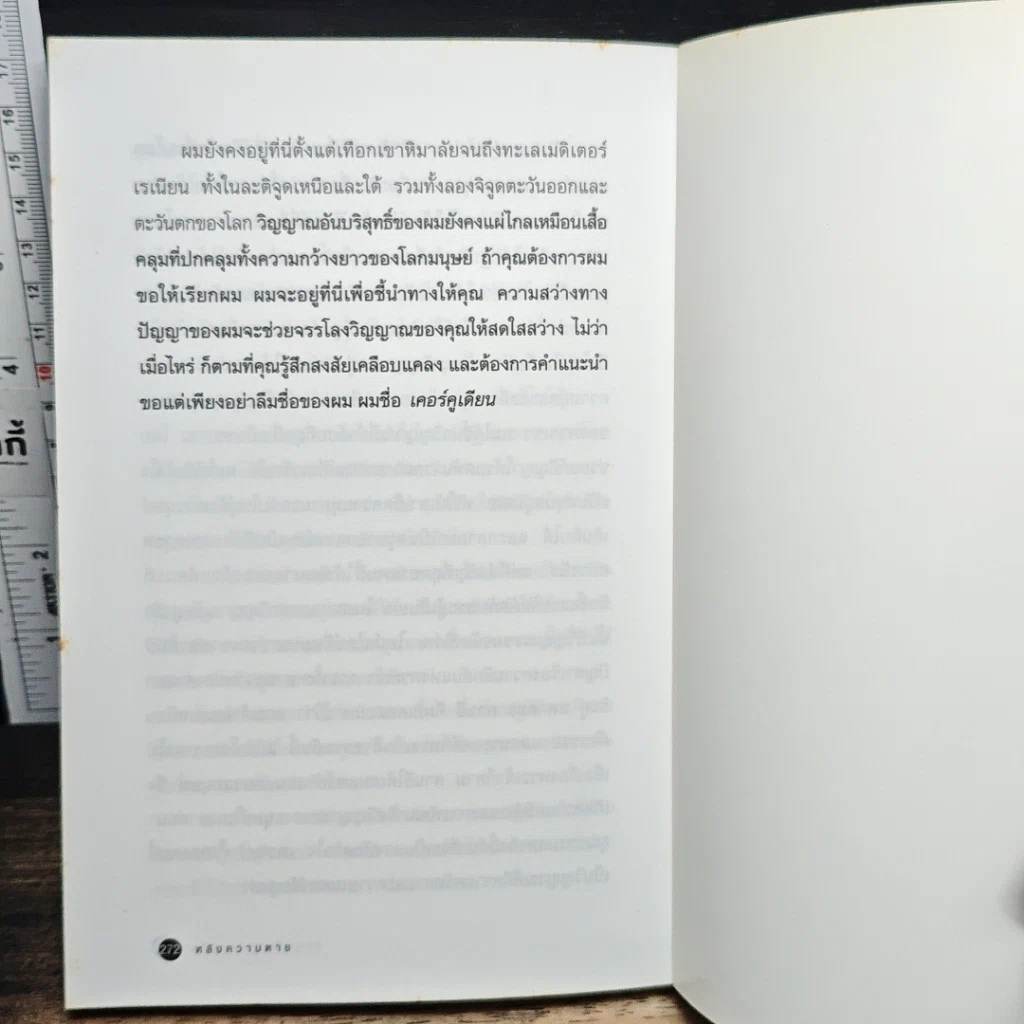 ผมยังคงอยู่ที่นี่ตั้งแต่เทือกเขาหิมาลัยจนถึงทะเลเมดิเตอร์
เรเนียน ทั้งในละติจูดเหนือและใต้ รวมทั้งลองจิจูดตะวันออกและ
ตะวันตกของโลก วิญญาณอันบริสุทธิ์ของผมยังคงแผ่ไกลเหมือนเสื้อ
คลุมที่ปกคลุมทั้งความกว้างยาวของโลกมนุษย์ ถ้าคุณต้องการผม
ขอให้เรียกผม ผมจะอยู่ที่นี่เพื่อชี้นำทางให้คุณ ความสว่างทาง
ปัญญาของผมจะช่วยจรรโลงวิญญาณของคุณให้สดใสสว่าง ไม่ว่า
เมื่อไหร่ ก็ตามที่คุณรู้สึกสงสัยเคลือบแคลง และต้องการคำแนะนำ
ขอแต่เพียงอย่าลืมชื่อของผม ผมชื่อ เคอร์คูเดียน
272 หลังความตาย
17
16
15
14
13
12
11
10
4
2
1